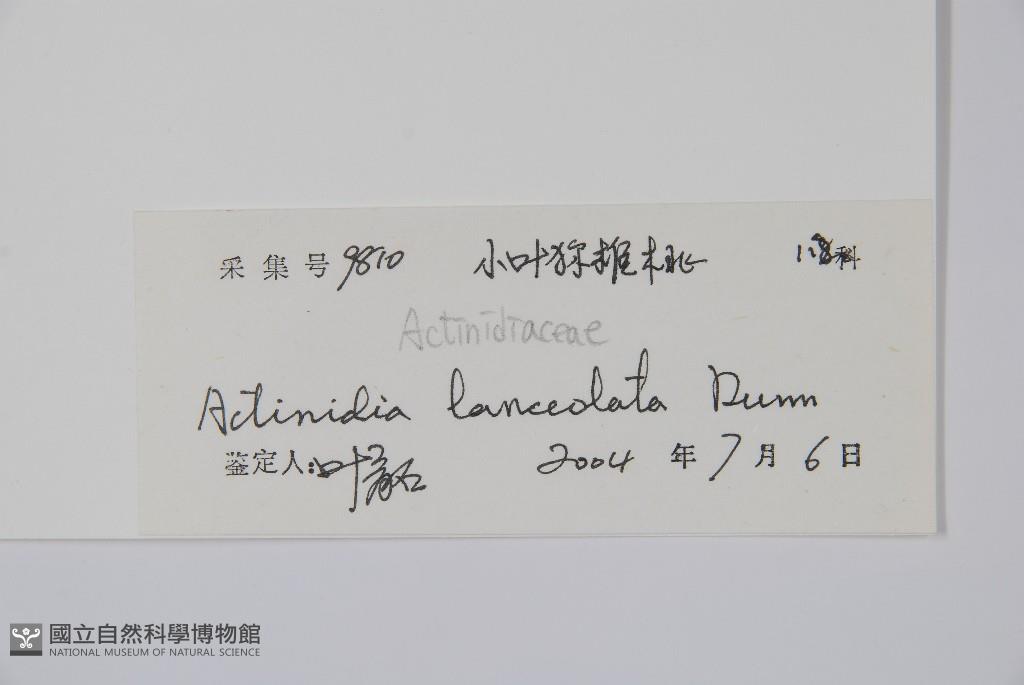 采集号 9810 小叶猕猴桃 118科
Actinidiaceae
Actinidia lanceolata Dunn
鉴定人: 叶 2004 年 7 月 6 日
國立自然科學博物館
NATIONAL MUSEUM OF NATURAL SCIENCE